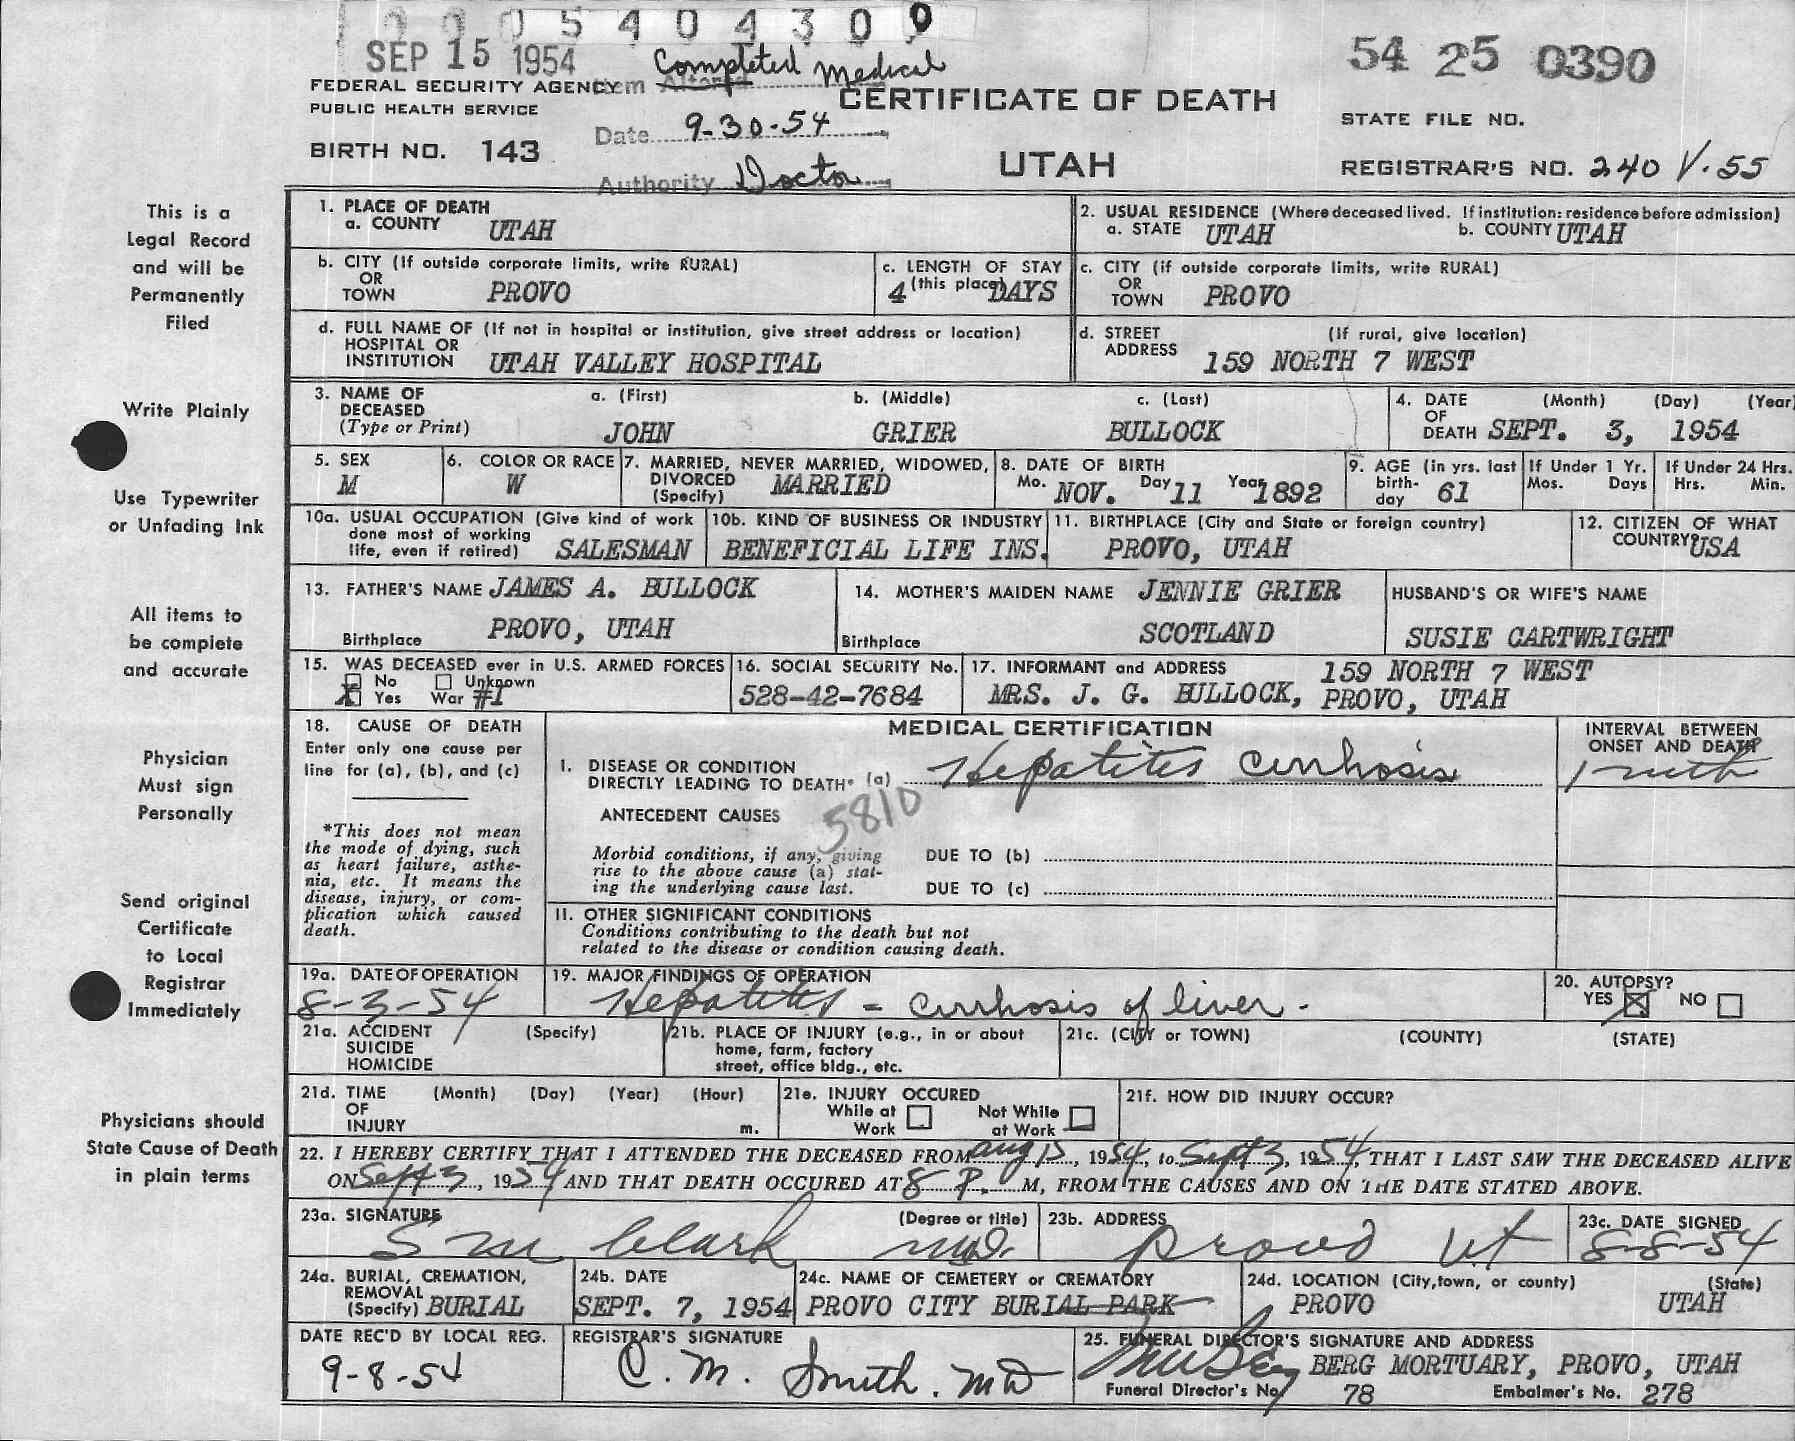 0005404300
SEP 15 1954
Completed Medical
54 25 0390
FEDERAL SECURITY AGENCY
Item Altered
PUBLIC HEALTH SERVICE
CERTIFICATE OF DEATH
STATE FILE NO.
Date 9-30-54
BIRTH NO. 143
UTAH
REGISTRAR'S NO. 240 V.55
Authority Doctor
This is a
Legal Record
and will be
Permanently
Filed
1. PLACE OF DEATH
a. COUNTY UTAH
2. USUAL RESIDENCE (Where deceased lived. If institution: residence before admission)
a. STATE UTAH b. COUNTY UTAH
b. CITY (If outside corporate limits, write RURAL)
OR
TOWN PROVO
c. LENGTH OF STAY
(this place)
4 DAYS
c. CITY (if outside corporate limits, write RURAL)
OR
TOWN PROVO
d. FULL NAME OF (If not in hospital or institution, give street address or location)
HOSPITAL OR
INSTITUTION UTAH VALLEY HOSPITAL
d. STREET (If rural, give location)
ADDRESS 159 NORTH 7 WEST
Write Plainly
3. NAME OF a. (First) b. (Middle) c. (Last)
DECEASED
(Type or Print) JOHN GRIER BULLOCK
4. DATE (Month) (Day) (Year)
OF
DEATH SEPT. 3, 1954
Use Typewriter
or Unfading Ink
5. SEX
M
6. COLOR OR RACE
W
7. MARRIED, NEVER MARRIED, WIDOWED,
DIVORCED
(Specify) MARRIED
8. DATE OF BIRTH
Mo. NOV. Day 11 Year 1892
9. AGE (in yrs. last
birth-
day 61
If Under 1 Yr.
Mos. Days
If Under 24 Hrs.
Hrs. Min.
10a. USUAL OCCUPATION (Give kind of work
done most of working
life, even if retired) SALESMAN
10b. KIND OF BUSINESS OR INDUSTRY
BENEFICIAL LIFE INS.
11. BIRTHPLACE (City and State or foreign country)
PROVO, UTAH
12. CITIZEN OF WHAT
COUNTRY? USA
All items to
be complete
and accurate
13. FATHER'S NAME JAMES A. BULLOCK
Birthplace PROVO, UTAH
14. MOTHER'S MAIDEN NAME JENNIE GRIER
Birthplace SCOTLAND
HUSBAND'S OR WIFE'S NAME
SUSIE CARTWRIGHT
15. WAS DECEASED ever in U.S. ARMED FORCES
No Unknown
X Yes War #1
16. SOCIAL SECURITY No.
528-42-7684
17. INFORMANT and ADDRESS 159 NORTH 7 WEST
MRS. J. G. BULLOCK, PROVO, UTAH
Physician
Must sign
Personally
18. CAUSE OF DEATH
Enter only one cause per
line for (a), (b), and (c)
*This does not mean
the mode of dying, such
as heart failure, asthe-
nia, etc. It means the
disease, injury, or com-
plication which caused
death.
MEDICAL CERTIFICATION
INTERVAL BETWEEN
ONSET AND DEATH
I. DISEASE OR CONDITION
DIRECTLY LEADING TO DEATH* (a) Hepatites cirrhosis
ANTECEDENT CAUSES
5810
Morbid conditions, if any, giving
rise to the above cause (a) stat-
ing the underlying cause last.
DUE TO (b)
DUE TO (c)
II. OTHER SIGNIFICANT CONDITIONS
Conditions contributing to the death but not
related to the disease or condition causing death.
Send original
Certificate
to Local
Registrar
Immediately
19a. DATE OF OPERATION
8-3-54
19. MAJOR FINDINGS OF OPERATION
Hepatites = cirrhosis of liver -
20. AUTOPSY?
YES X NO
21a. ACCIDENT (Specify)
SUICIDE
HOMICIDE
21b. PLACE OF INJURY (e.g., in or about
home, farm, factory
street, office bldg., etc.
21c. (CITY or TOWN) (COUNTY) (STATE)
21d. TIME (Month) (Day) (Year) (Hour)
OF
INJURY m.
21e. INJURY OCCURED
While at Work Not While at Work
21f. HOW DID INJURY OCCUR?
Physicians should
State Cause of Death
in plain terms
22. I HEREBY CERTIFY THAT I ATTENDED THE DECEASED FROM Aug 15, 1954, to Sept 3, 1954, THAT I LAST SAW THE DECEASED ALIVE
ON Sept 3, 1954 AND THAT DEATH OCCURED AT 8 P. M, FROM THE CAUSES AND ON THE DATE STATED ABOVE.
23a. SIGNATURE (Degree or title)
S M Clark MD.
23b. ADDRESS
Provo Ut
23c. DATE SIGNED
8-8-54
24a. BURIAL, CREMATION,
REMOVAL
(Specify) BURIAL
24b. DATE
SEPT. 7, 1954
24c. NAME OF CEMETERY or CREMATORY
PROVO CITY BURIAL PARK
24d. LOCATION (City, town, or county) (State)
PROVO UTAH
DATE REC'D BY LOCAL REG.
9-8-54
REGISTRAR'S SIGNATURE
C. M. Smith. MD
25. FUNERAL DIRECTOR'S SIGNATURE AND ADDRESS
BERG MORTUARY, PROVO, UTAH
Funeral Director's No. 78 Embalmer's No. 278